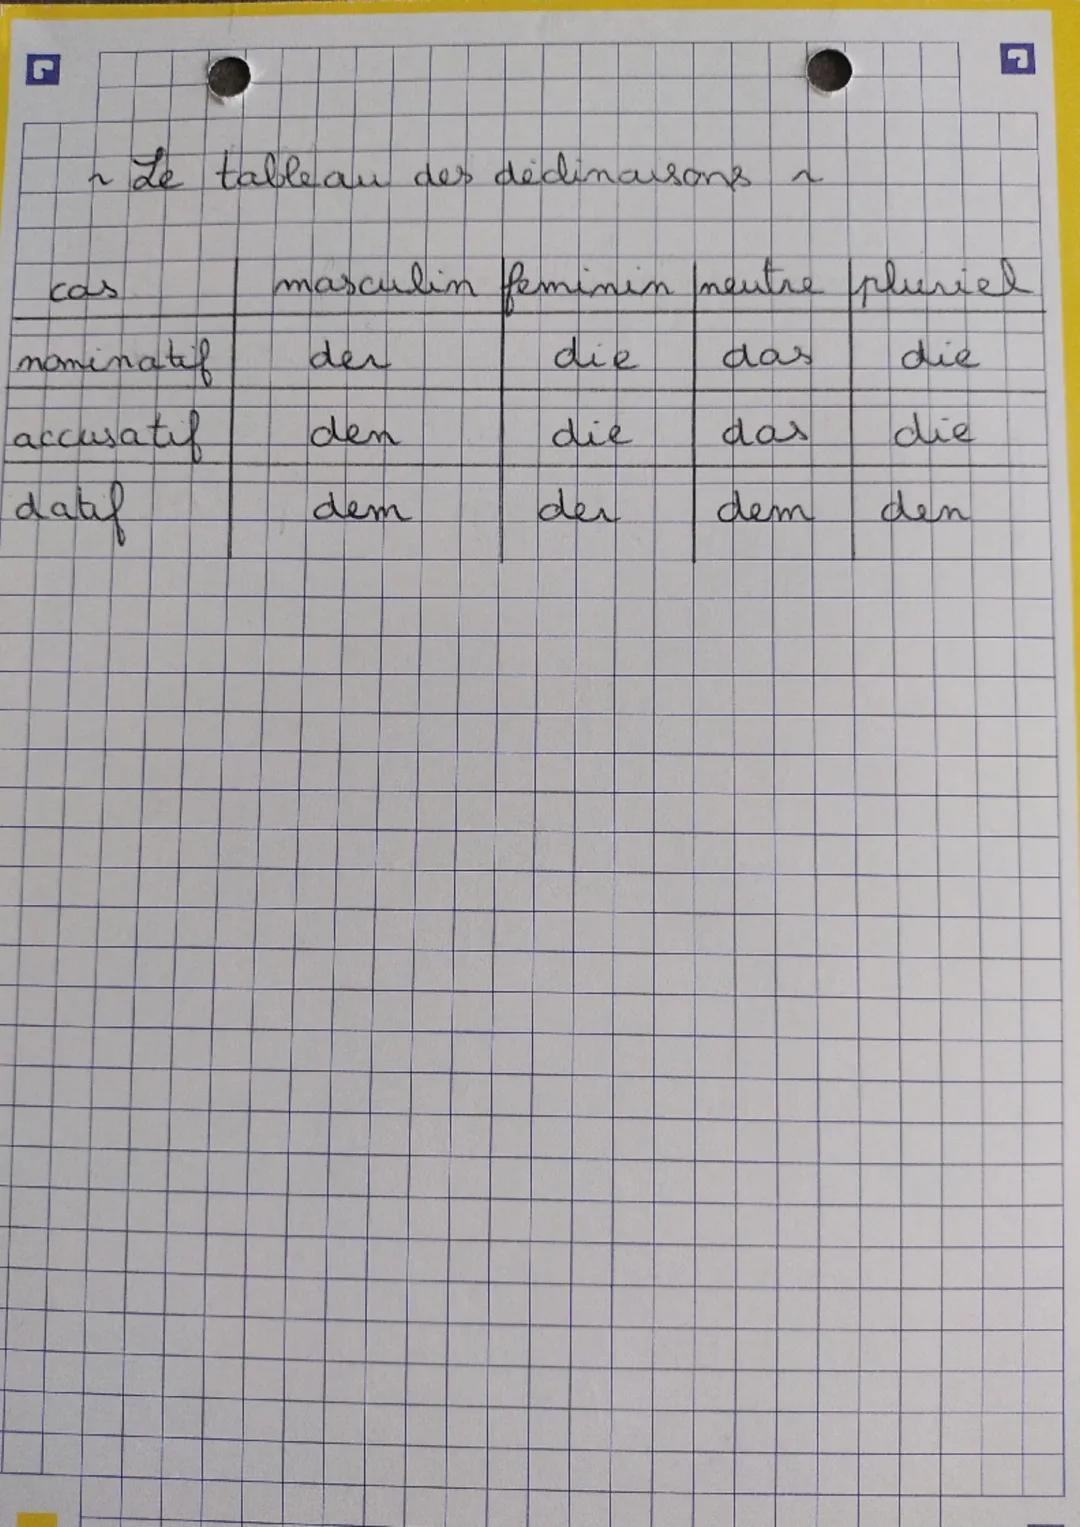 ~ Le tableau des déclinaisons ~
cas masculin feminin neutre pluriel
nominatif der die das die
accusatif den die das die
datif dem der dem den